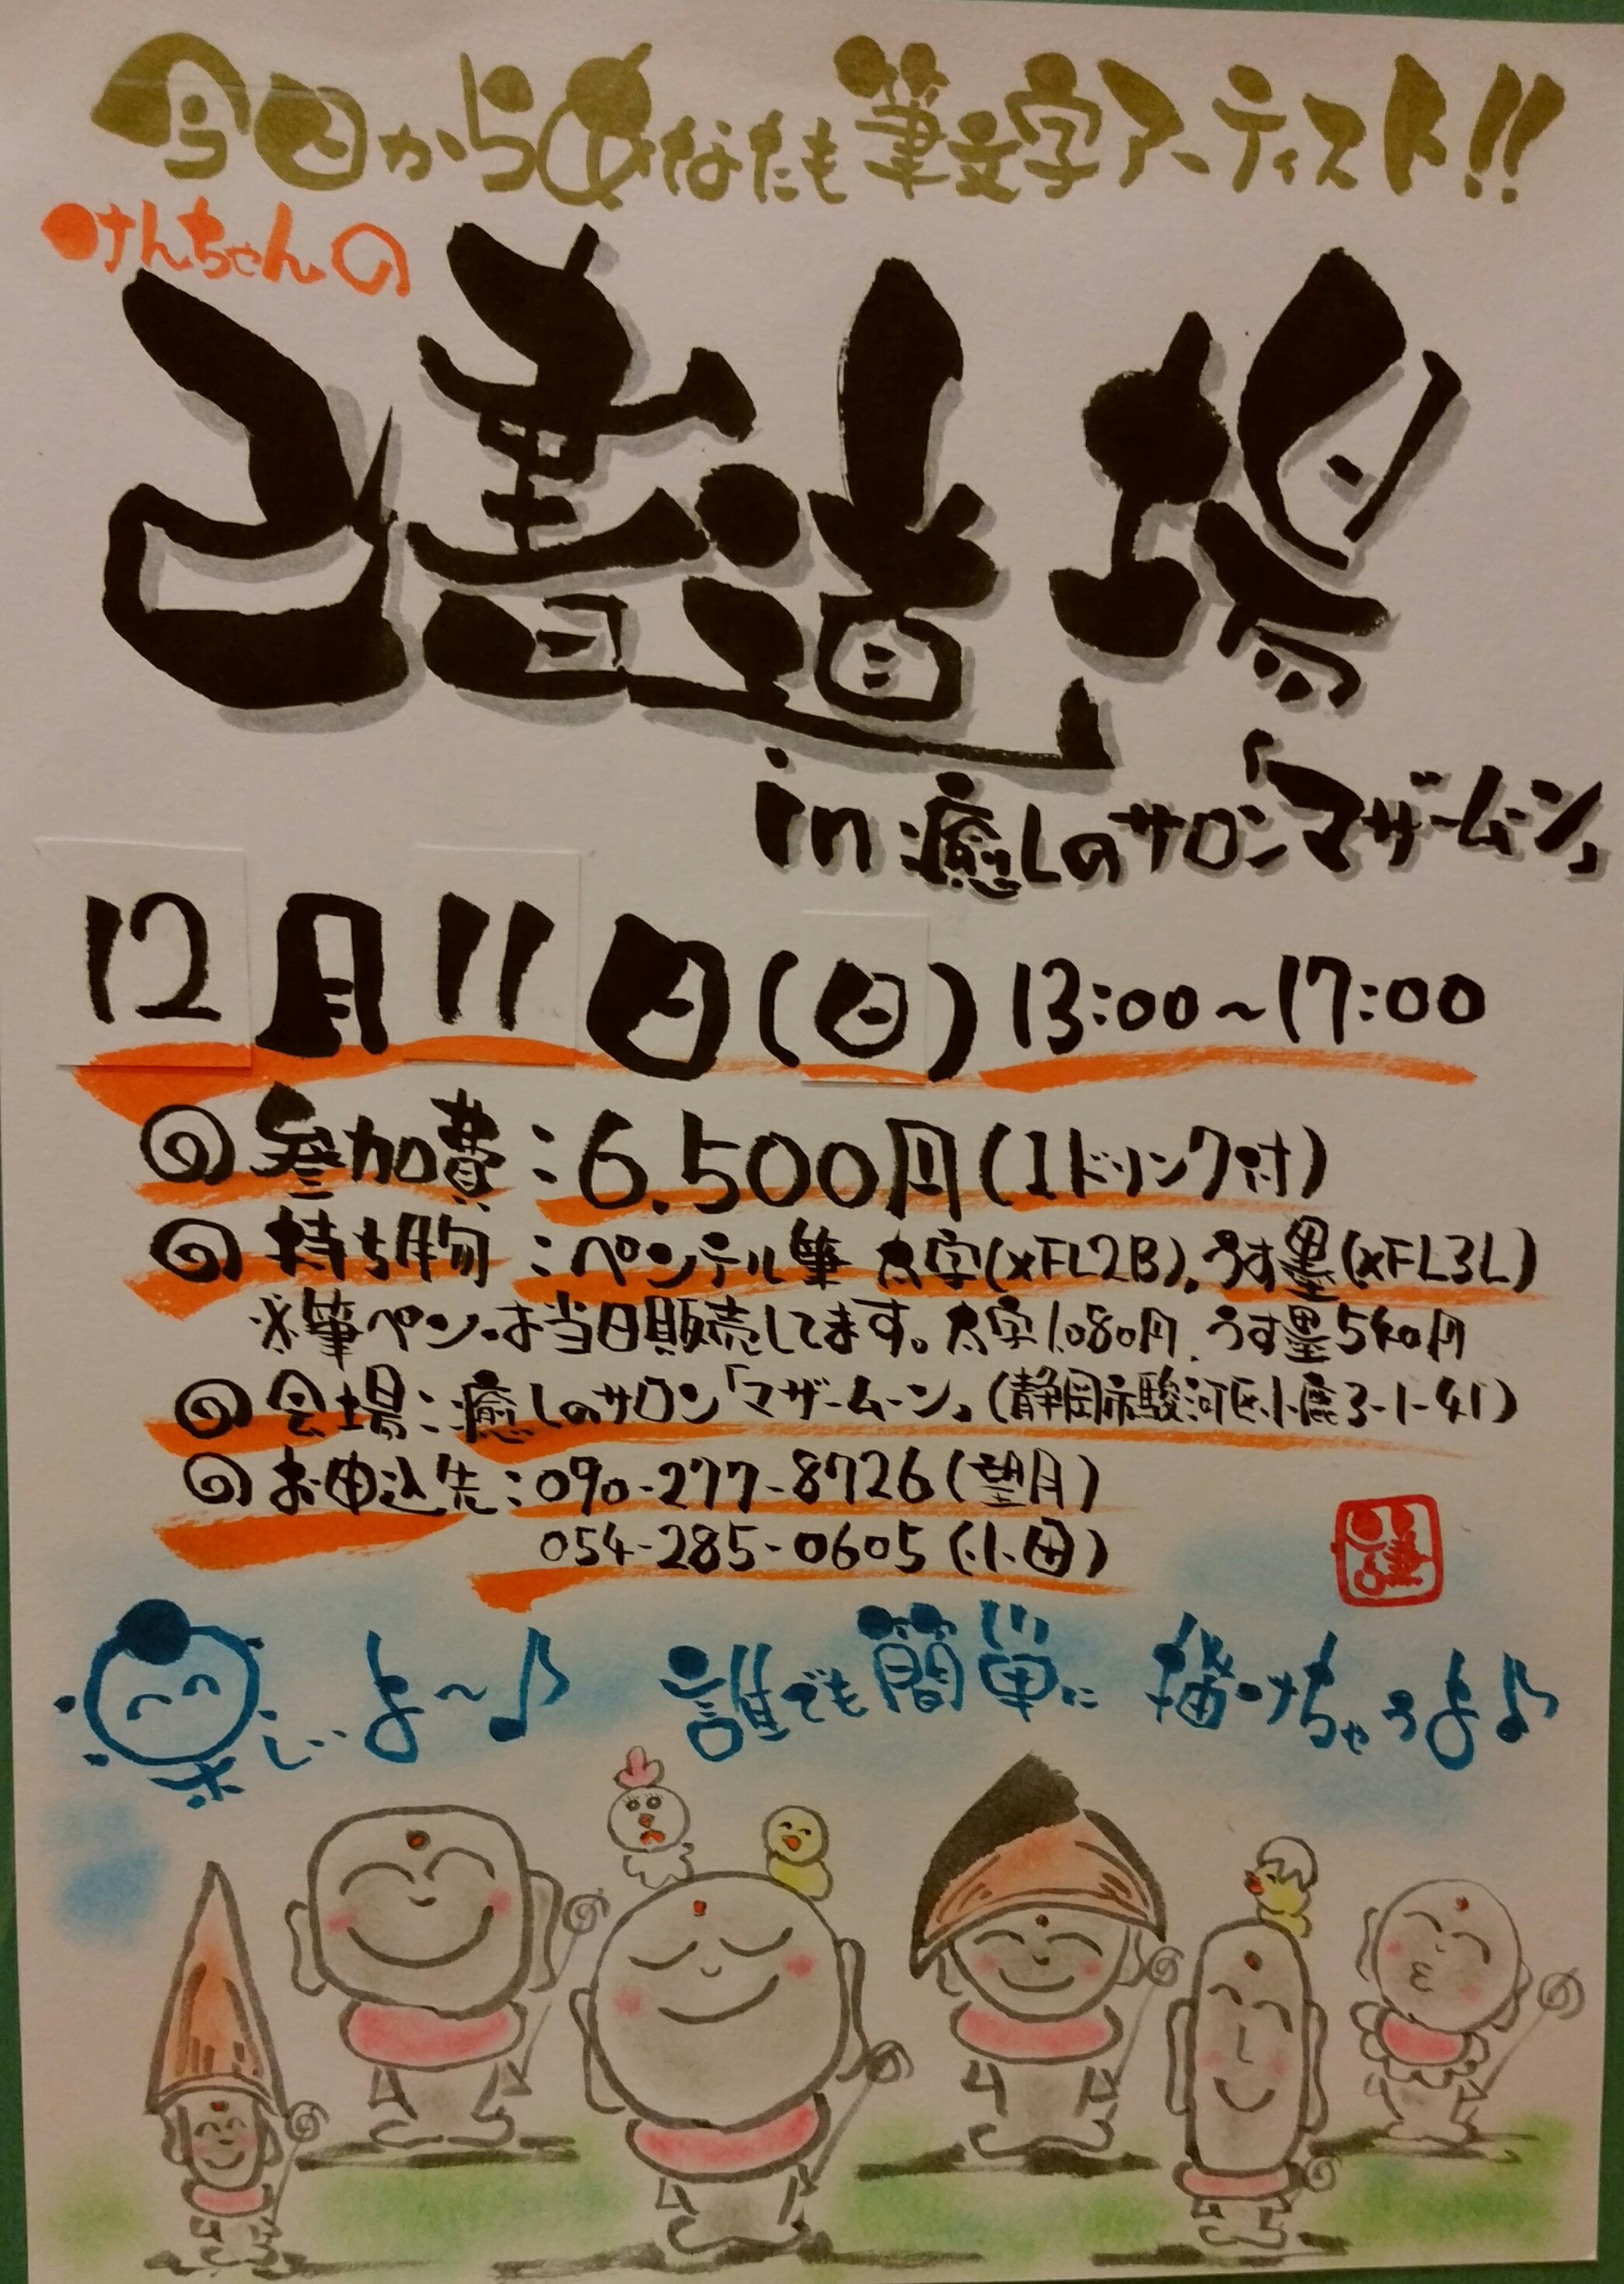 今日からあなたも筆文字アーティスト!!
けんちゃんの
己書道場
in癒しのサロン「マザームーン」
12月11日(日)13:00~17:00
参加費:6.500円(1ドリンク付)
持ち物:ぺんてる筆 太字(XFL2B)、うす墨(XFL3L)
※筆ペンは当日販売してます。太字1.080円、うす墨540円
会場:癒しのサロン「マザームーン」(静岡市駿河区小鹿3-1-41)
お申込先:090-277-8726(望月)
054-285-0605(小田)
楽しいよ~♪ 誰でも簡単に描けちゃうよ♪